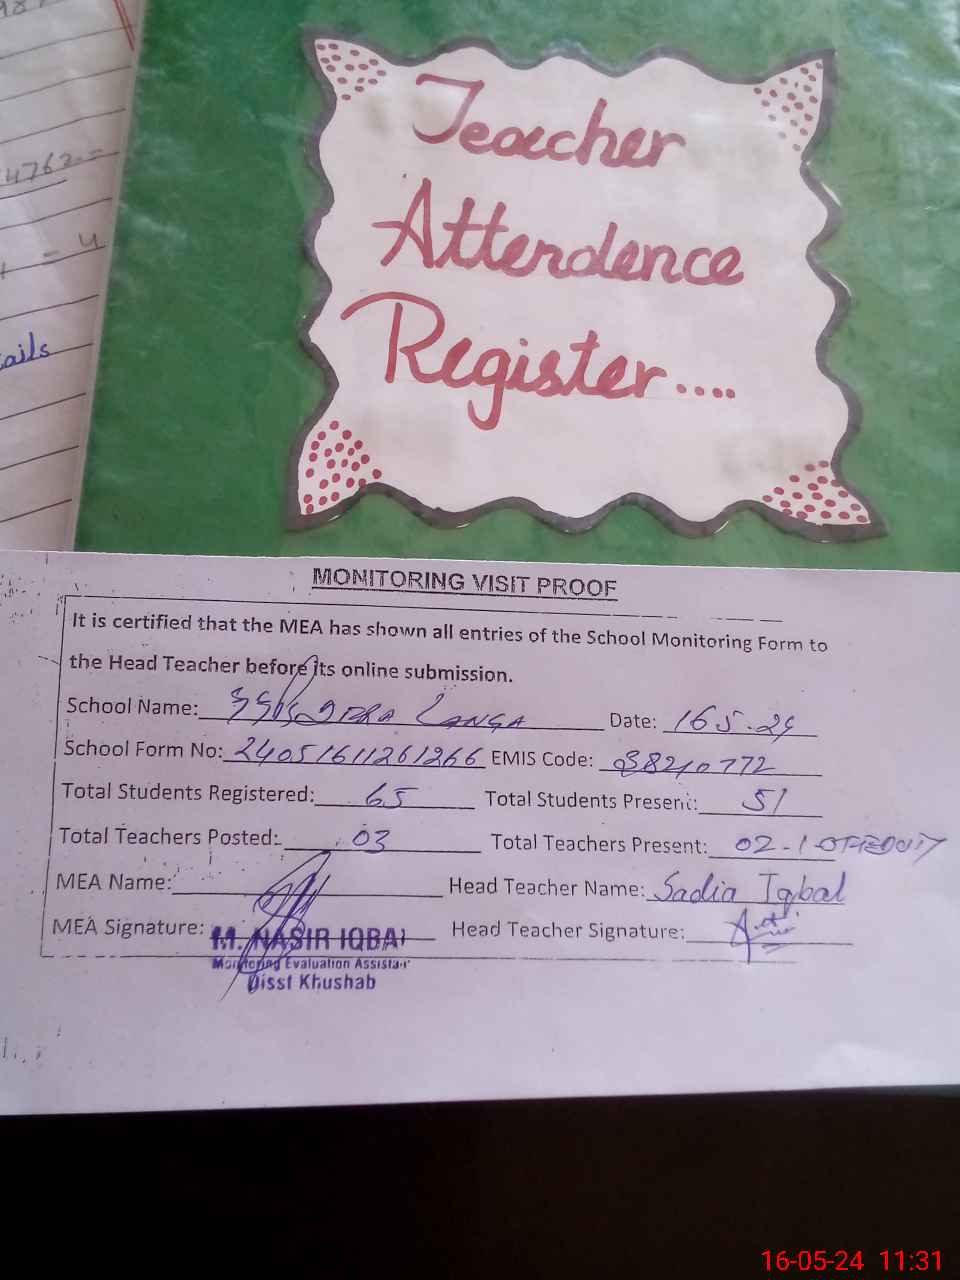 4762.=
= 4
ails
Teacher
Attendence
Register....
MONITORING VISIT PROOF
It is certified that the MEA has shown all entries of the School Monitoring Form to
the Head Teacher before its online submission.
School Name: DERA LANGA Date: 16 5-24
School Form No: 24051611261266 EMIS Code: 38210772
Total Students Registered: 65 Total Students Present: 51
Total Teachers Posted: 03 Total Teachers Present: 02-1
MEA Name: Head Teacher Name: Sadia Iqbal
MEA Signature: Head Teacher Signature:
M. NASIR IQBAL
Monitoring Evaluation Assistant
Disst Khushab
16-05-24 11:31